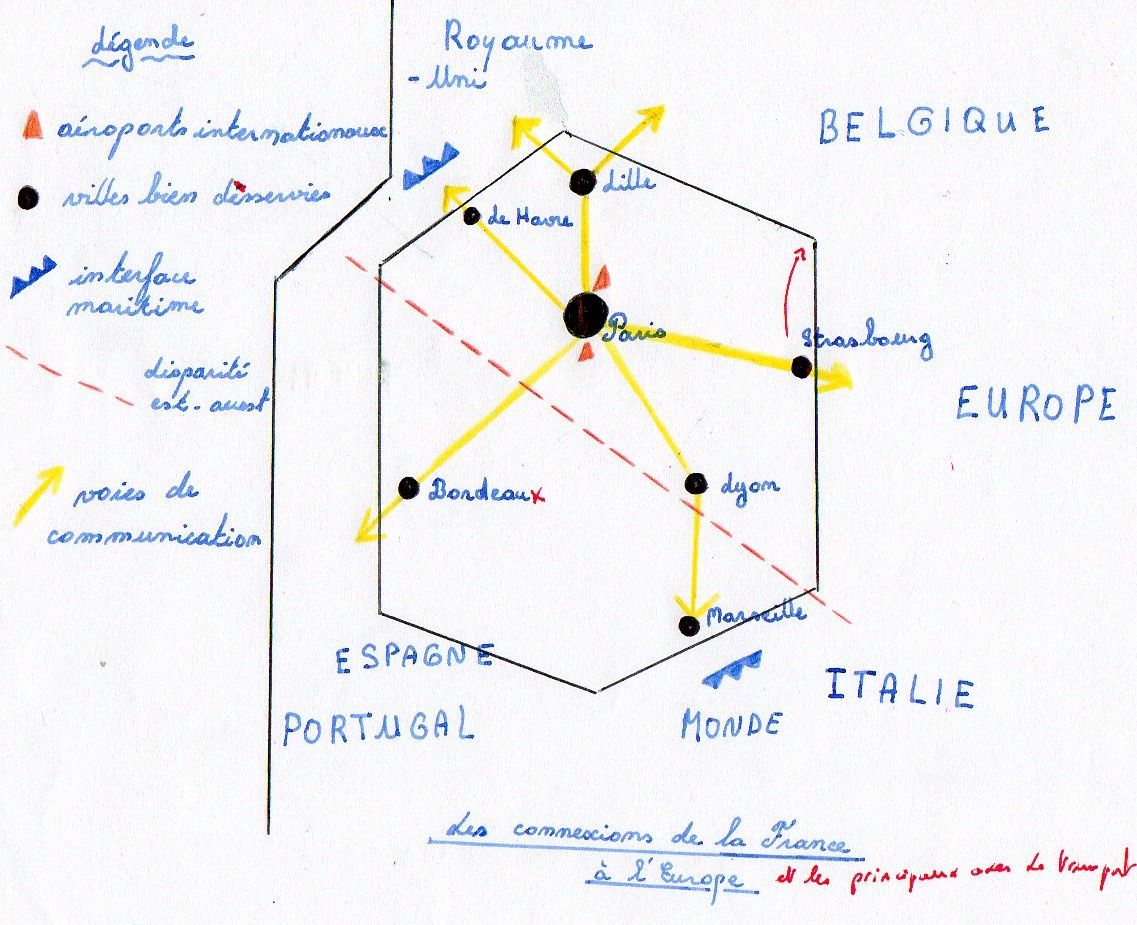 légende
aéroports internationaux
villes bien desservies
interface
maritime
disparité
est-ouest
voies de
communication
Royaume
-Uni
BELGIQUE
Lille
Le Havre
Paris
Strasbourg
EUROPE
Bordeaux
Lyon
Marseille
ESPAGNE
ITALIE
PORTUGAL
MONDE
Les connexions de la France
à l'Europe et les principaux axes de transport